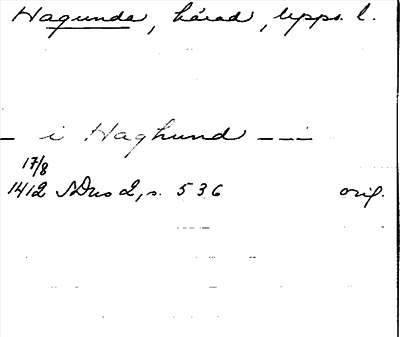 Hagunda, härad, Upps. l.
– i Haghund – – –
17/8
1412 SDns 2, s. 536 orig.